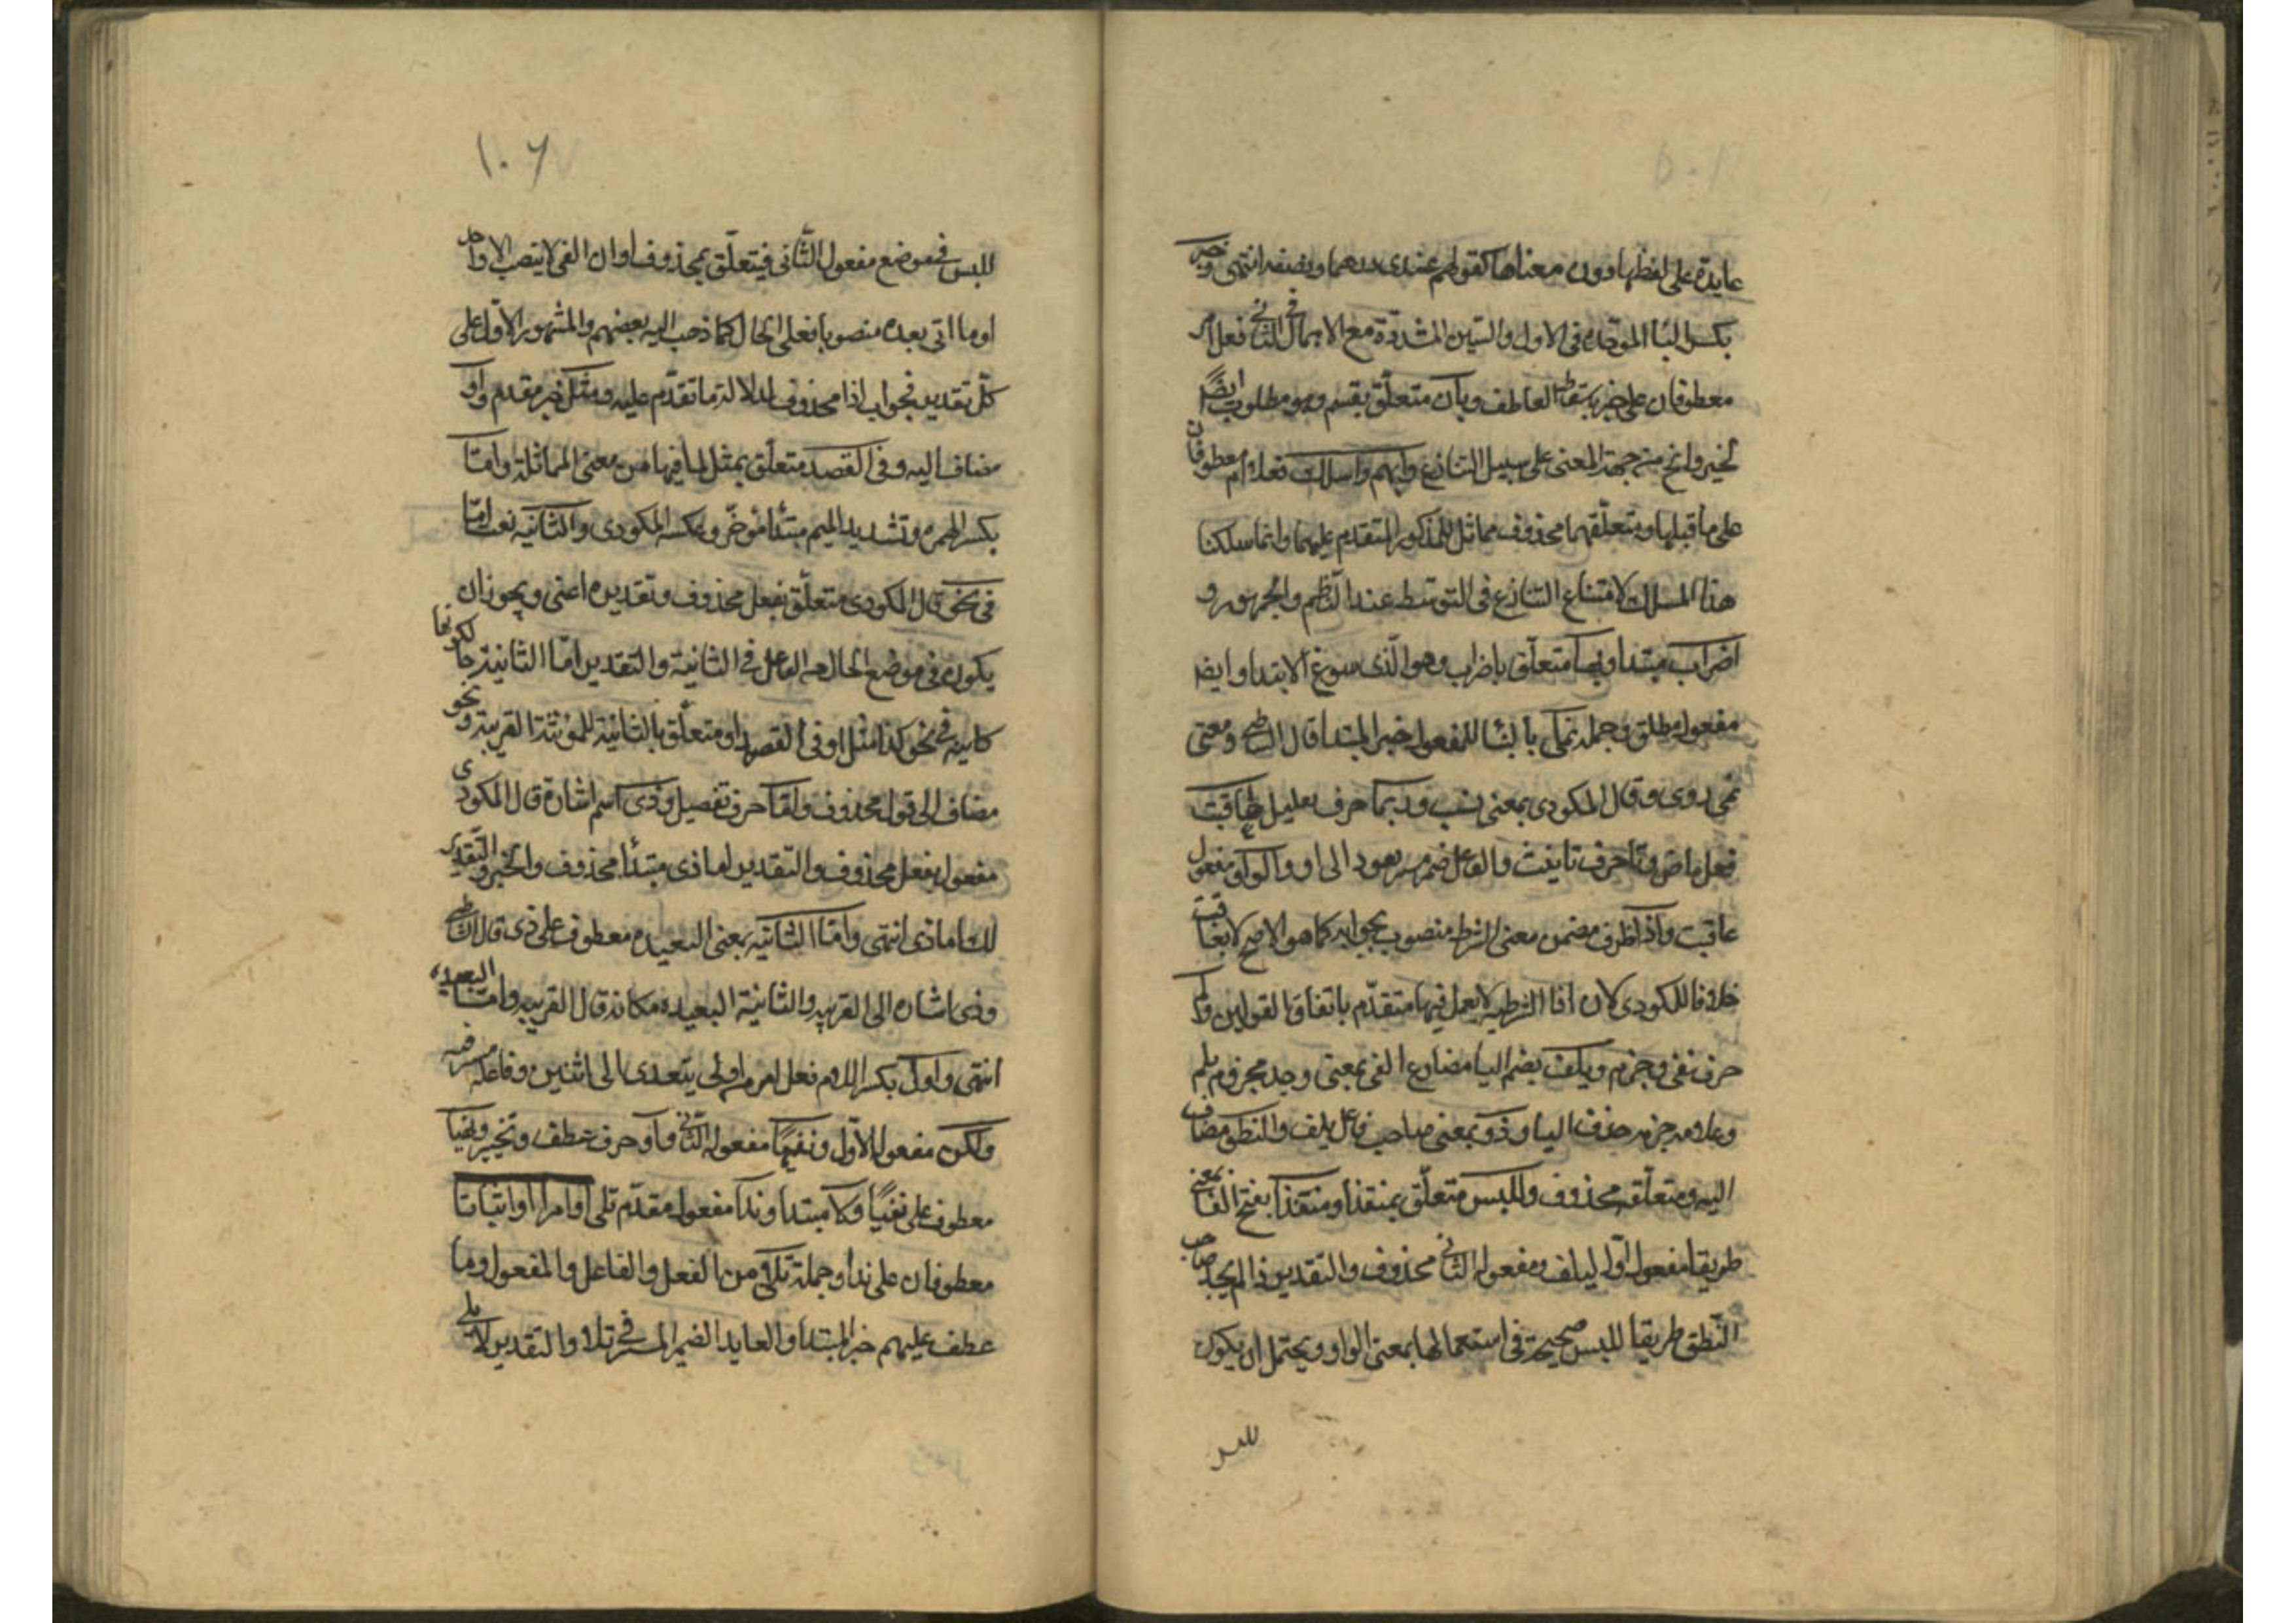 عايدة على لفظها دون معناها كقولهم عندى درهما ونصفه انتهى وخير
بكسر اليا الموحده فى الاول والسين المشددة مع الاهمال فى الثانى فعل امر
معطوفان على خير باسقاط العاطف وبأن متعلق بقسم وهو مطلوب ايضًا
لخير وابح من جهة المعنى على سبيل التنازع وابهم واسلك فعلا امر معطوفان
على ما قبلها ومتعلقهما محذوف مماثل للمذكور المتقدم عليهما وانما سلكنا
هذا المسلك لامتناع التنازع فى التوسط عند الناظم والجمهور و
اضراب مبتدا وبها متعلق باضراب وهو الذى سوغ الابتدا وايضا
مفعول مطلق وجملة نمى بالبنا للمفعول خبر المبتدا قال الشاطبى ومعنى
نمى روى وقال المكودى بمعنى نسب وربما حرف تقليل عاقبت
فعل ماض وتا حرف تانيث والفاعل ضمير يعود الى او والواو مفعول
عاقبت واذا ظرف مضمن معنى الشرط منصوب بجوابه كما هو الاصح لا بعاقبت
خلافا للمكودى لان اذا الشرطية لا يعمل فيها متقدم باتفاق القولين ولم
حرف نفى وجزم ويلف بضم اليا مضارع الفى بمعنى وجد مجزوم بلم
وعلامة جزمه حذف اليا وذو بمعنى صاحب فاعل يلف والنطق مضاف
اليه ومتعلقه محذوف وللبس متعلق بمنفذا ومنفذا بفتح الفا بمعنى
طريقا مفعول اول ليلف ومفعوله الثانى محذوف والتقدير اذا لم يجد صاحب
النطق طريقا للبس صحيحة فى استعمالها بمعنى الواو ويحتمل ان يكون
للبس
١٠٦
للبس فى موضع مفعول الثانى فيتعلق بمحذوف او ان الفى لا ينصب الا واحد
او ما اتى بعده منصوبا فعلى الحال كما ذهب اليه بعضهم والمشهور الاول على
كل تقدير فجواب اذا محذوف لدلالة ما تقدم عليه ومثل خبر مقدم واو
مضاف اليه وفى القصد متعلق بمثل لما فيها من معنى المماثلة واما
بكسر الهمزه وتشديد الميم مبتدأ مؤخر وعكسه المكودى والثانيه نعت اما
فى نحو قال المكودى متعلق بفعل محذوف وتقديره اعنى ويجوز ان
يكون فى موضع الحال من الفاعل فى الثانية والتقدير اما الثانية حا لكونها
كاينه فى نحو كذا مثل او فى القصد او متعلق بالثانية للمؤنثة القريبة ونحو
مضاف الى قول محذوف واما حرف تفصيل وذى اسم اشارة قال المكودى
مفعول بفعل محذوف والتقدير اما ذى مبتدأ محذوف والخبر والتقدير
لك اما ذى انتهى واما الثانيه بمعنى البعيده معطوف على ذى قال الشاطبى
وذى اشاره الى القريبه والثانية البعيده مكانه قال القريبه واما البعيده
انتهى واول بكسر اللام فعل امر من اولى يتعدى الى اثنين وفاعله مستتر فيه
ولكن مفعوله الاول ونفيًا مفعوله الثانى واو حرف عطف وتخيير ونهيا
معطوف على نفيًا ولا مبتدا وندا مفعول مقدم تلى او امرا او اثباتا
معطوفان على ندا وجملة تلا من الفعل والفاعل والمفعول وما
عطف عليهم خبر المبتدا والعايد الضمير المستتر فى تلا والتقدير لا يلى